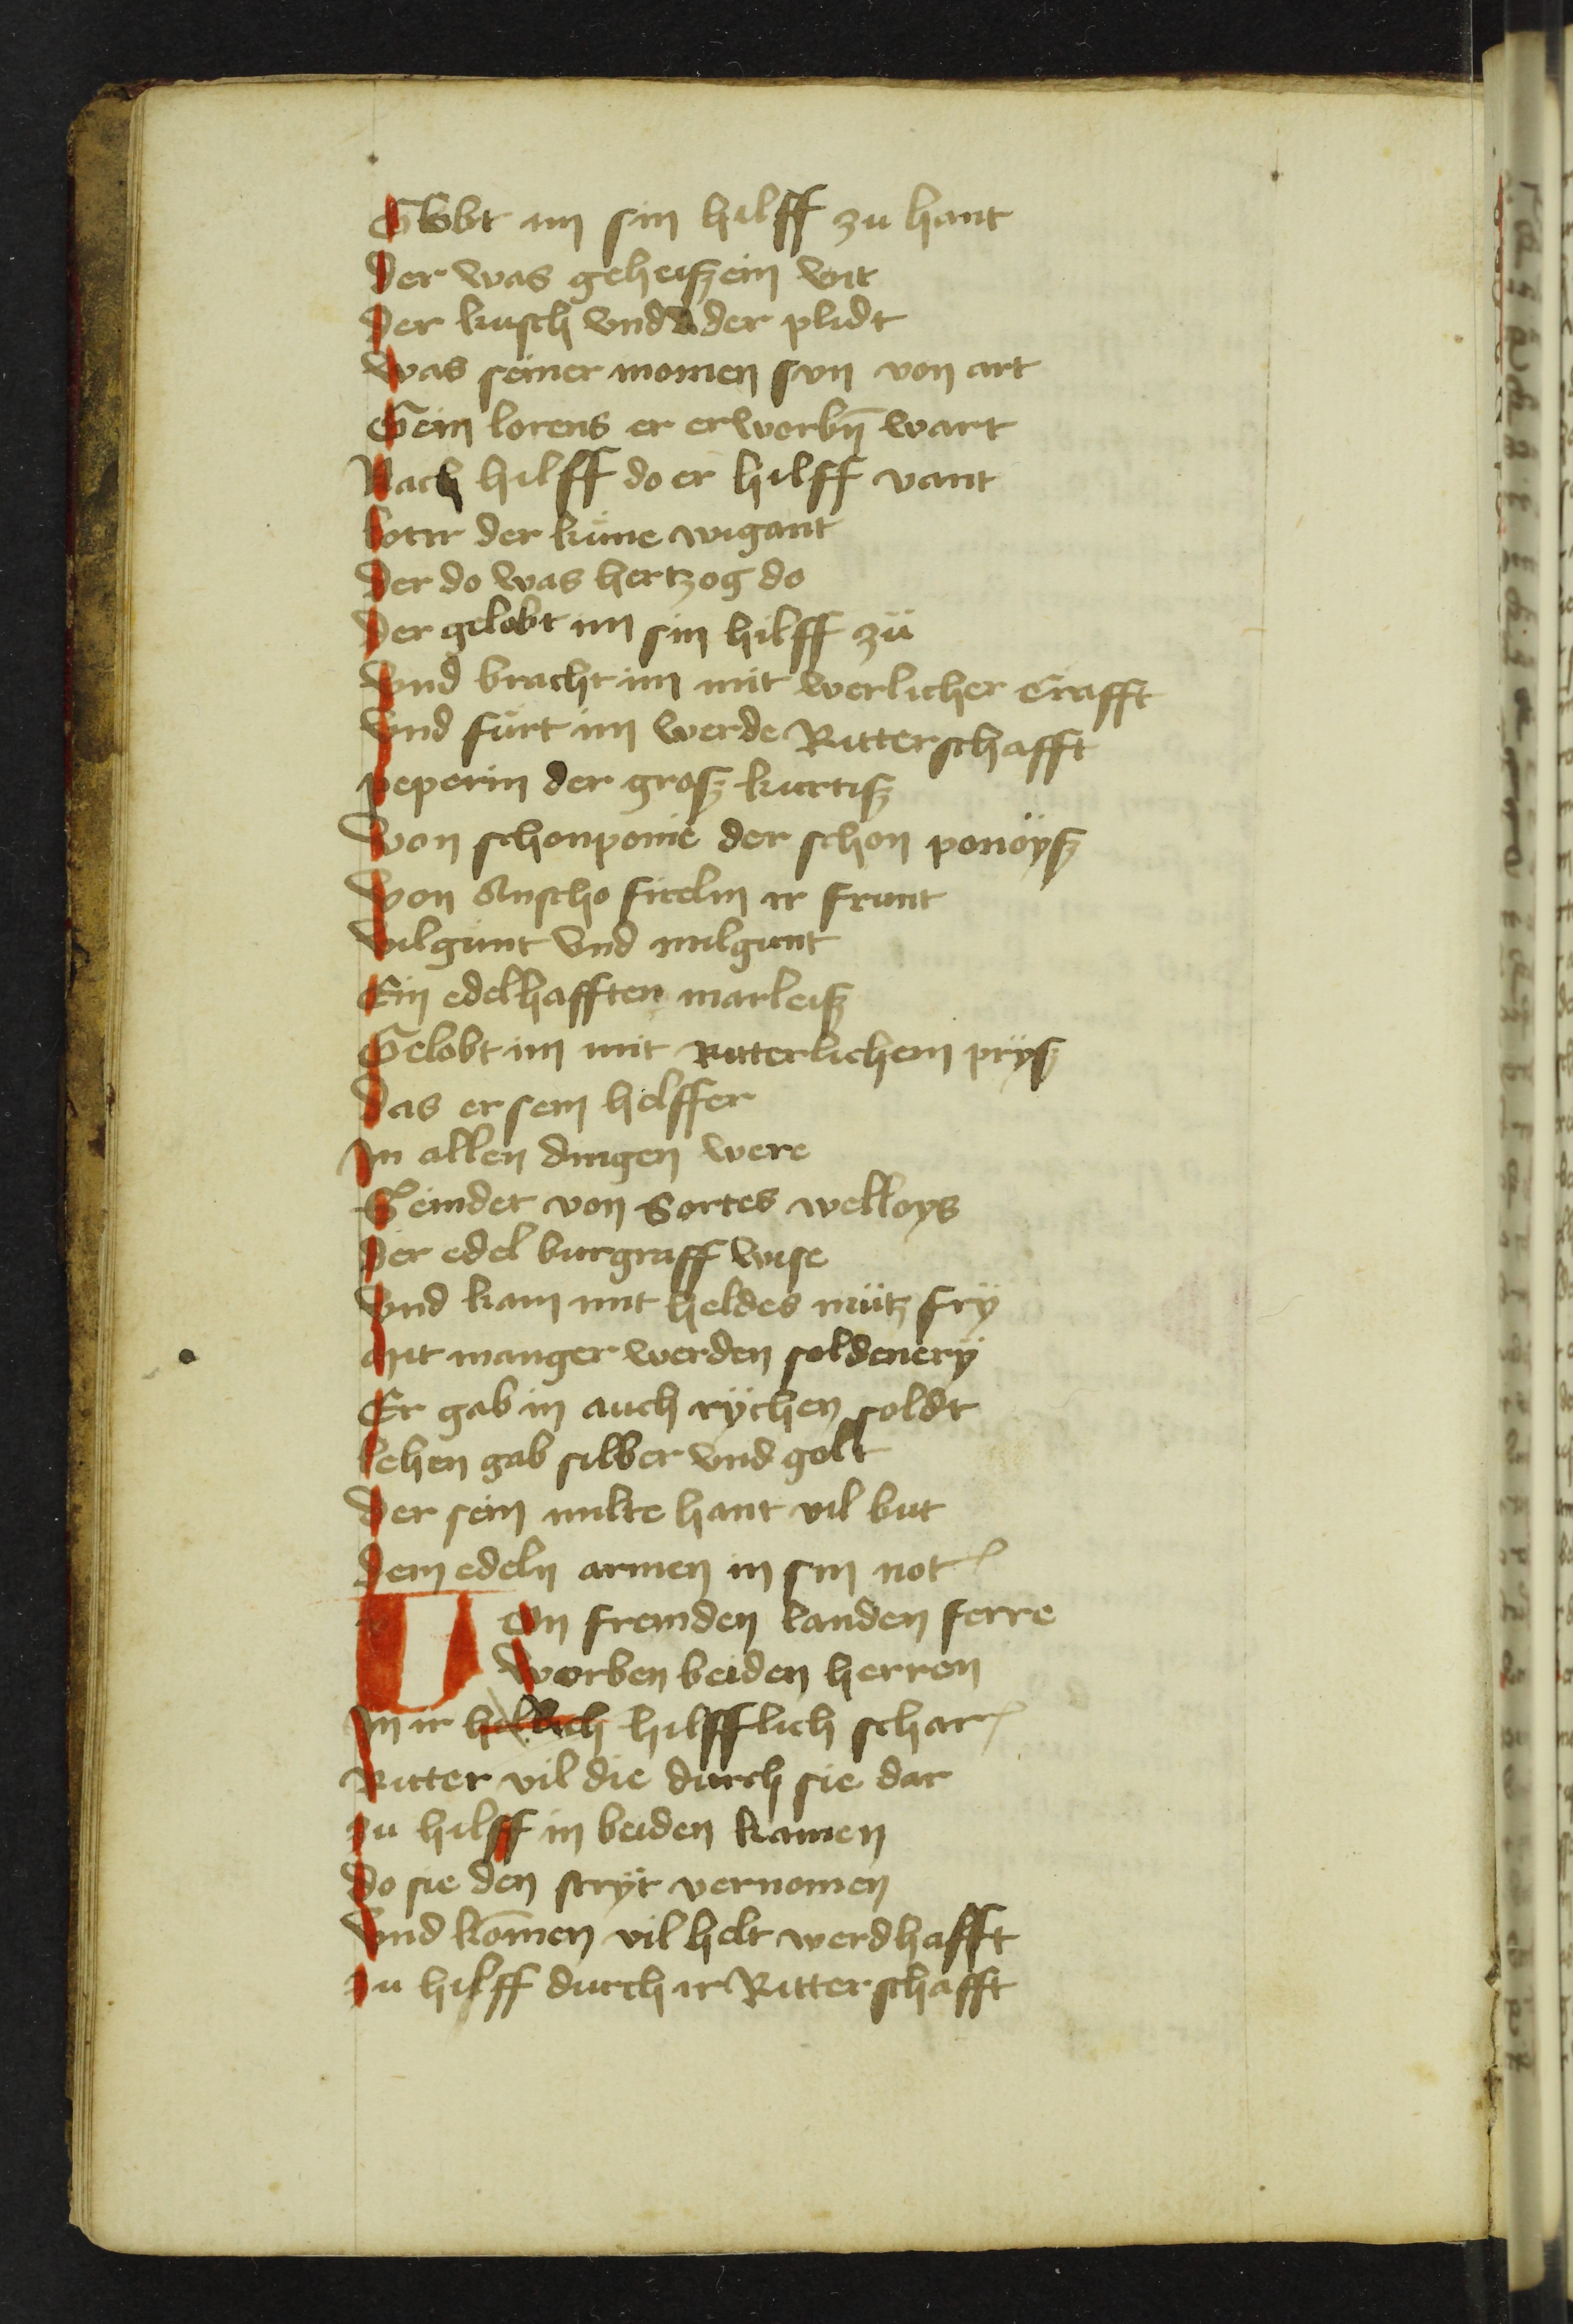 Globt im sin hilff zu hant
Der was geheiszein vit
Der kusch vnd der plidt
Was seiner momen svn von art
Gein lorens er erworbn̄ wart
Nach hilff do er hilff vant
lotrr der küne wigant
Der do was hertzog do
Der gelobt im sin hilff zü
Vnd bracht im mit werlicher Crafft
Vnd fürt im werde Ritterschafft
peperin der grosz kurtisz
Von schonponie der schon ponöysz
Von Anscho fitelin ir frunt
vilgunt Vnd milgunt
Ein edelhafften marleisz
Gelobt im mit Ritterlichem prÿsz
Das er sein helffer
In allen dingen were
Geinder von Sortes welloys
Der edel burgraff wise
Vnd kam mit heldes mütz frÿ
Mit manger werden soldenerÿ
Er gab in auch rÿchen soldt
lehen gab silber vnd golt
Der sein milte hant vil but
Dem edeln armen in sin not
Von fremden landen ferre
Worben beiden herren
In ir hilfflich schar
Ritter vil die durch sie dar
zu hilff in beiden kamen
Do sie den strÿt vernomen
Vnd kōmen vil helt werdhafft
zu hilff durch ir Ritterschafft